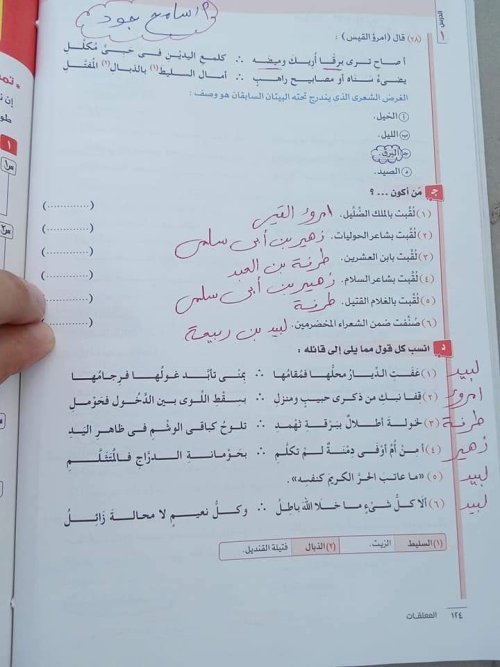 الدرس ١
أ/سامح جود
(٢٨) قال (امرؤ القيس) :
أصاح ترى برقًا أريك وميضه ∴ كلمع اليدين في حبيّ مكلل
يضيء سناه أو مصابيح راهب ∴ أمال السليط(١) بالذبال(٢) المُفتّل
الغرض الشعري الذي يندرج تحته البيتان السابقان هو وصف :
أ الخيل.
ب الليل.
ج البرق.
د الصيد.
ج مَن أكون ... ؟
(١) لُقّبت بالملك الضّلّيل. امرؤ القيس (............)
(٢) لُقّبت بشاعر الحوليات. زهير بن أبي سلمى (............)
(٣) لُقّبت بابن العشرين. طرفة بن العبد (............)
(٤) لُقّبت بشاعر السلام. زهير بن أبي سلمى (............)
(٥) لُقّبت بالغلام القتيل. طرفة (............)
(٦) صُنّفت ضمن الشعراء المخضرمين. لبيد بن ربيعة (............)
د انسب كل قول مما يلي إلى قائله :
لبيد (١) عَفَتِ الدِّيارُ محلُّها فمُقامُها ∴ بمِنى تأبّدَ غولُها فرِجامُها
امرؤ (٢) قفا نبك من ذكرى حبيبٍ ومنزل ∴ بسقْطِ اللّوى بين الدَّخول فحَوْمل
طرفة (٣) لخولة أطلالٌ ببُرْقة ثهْمَد ∴ تلوحُ كباقي الوشْم في ظاهر اليَد
زهير (٤) أمِنْ أمّ أوْفى دِمْنةٌ لمْ تكلّم ∴ بحَوْمانةِ الدرّاج فالمُتَثلّم
لبيد (٥) «ما عاتب الحرَّ الكريم كنفسه».
لبيد (٦) ألا كلُّ شيءٍ ما خلا الله باطلُ ∴ وكلُّ نعيمٍ لا محالة زائلُ
(١) السليط الزيت. (٢) الذبال فتيلة القنديل.
١٢٤ المعلقات